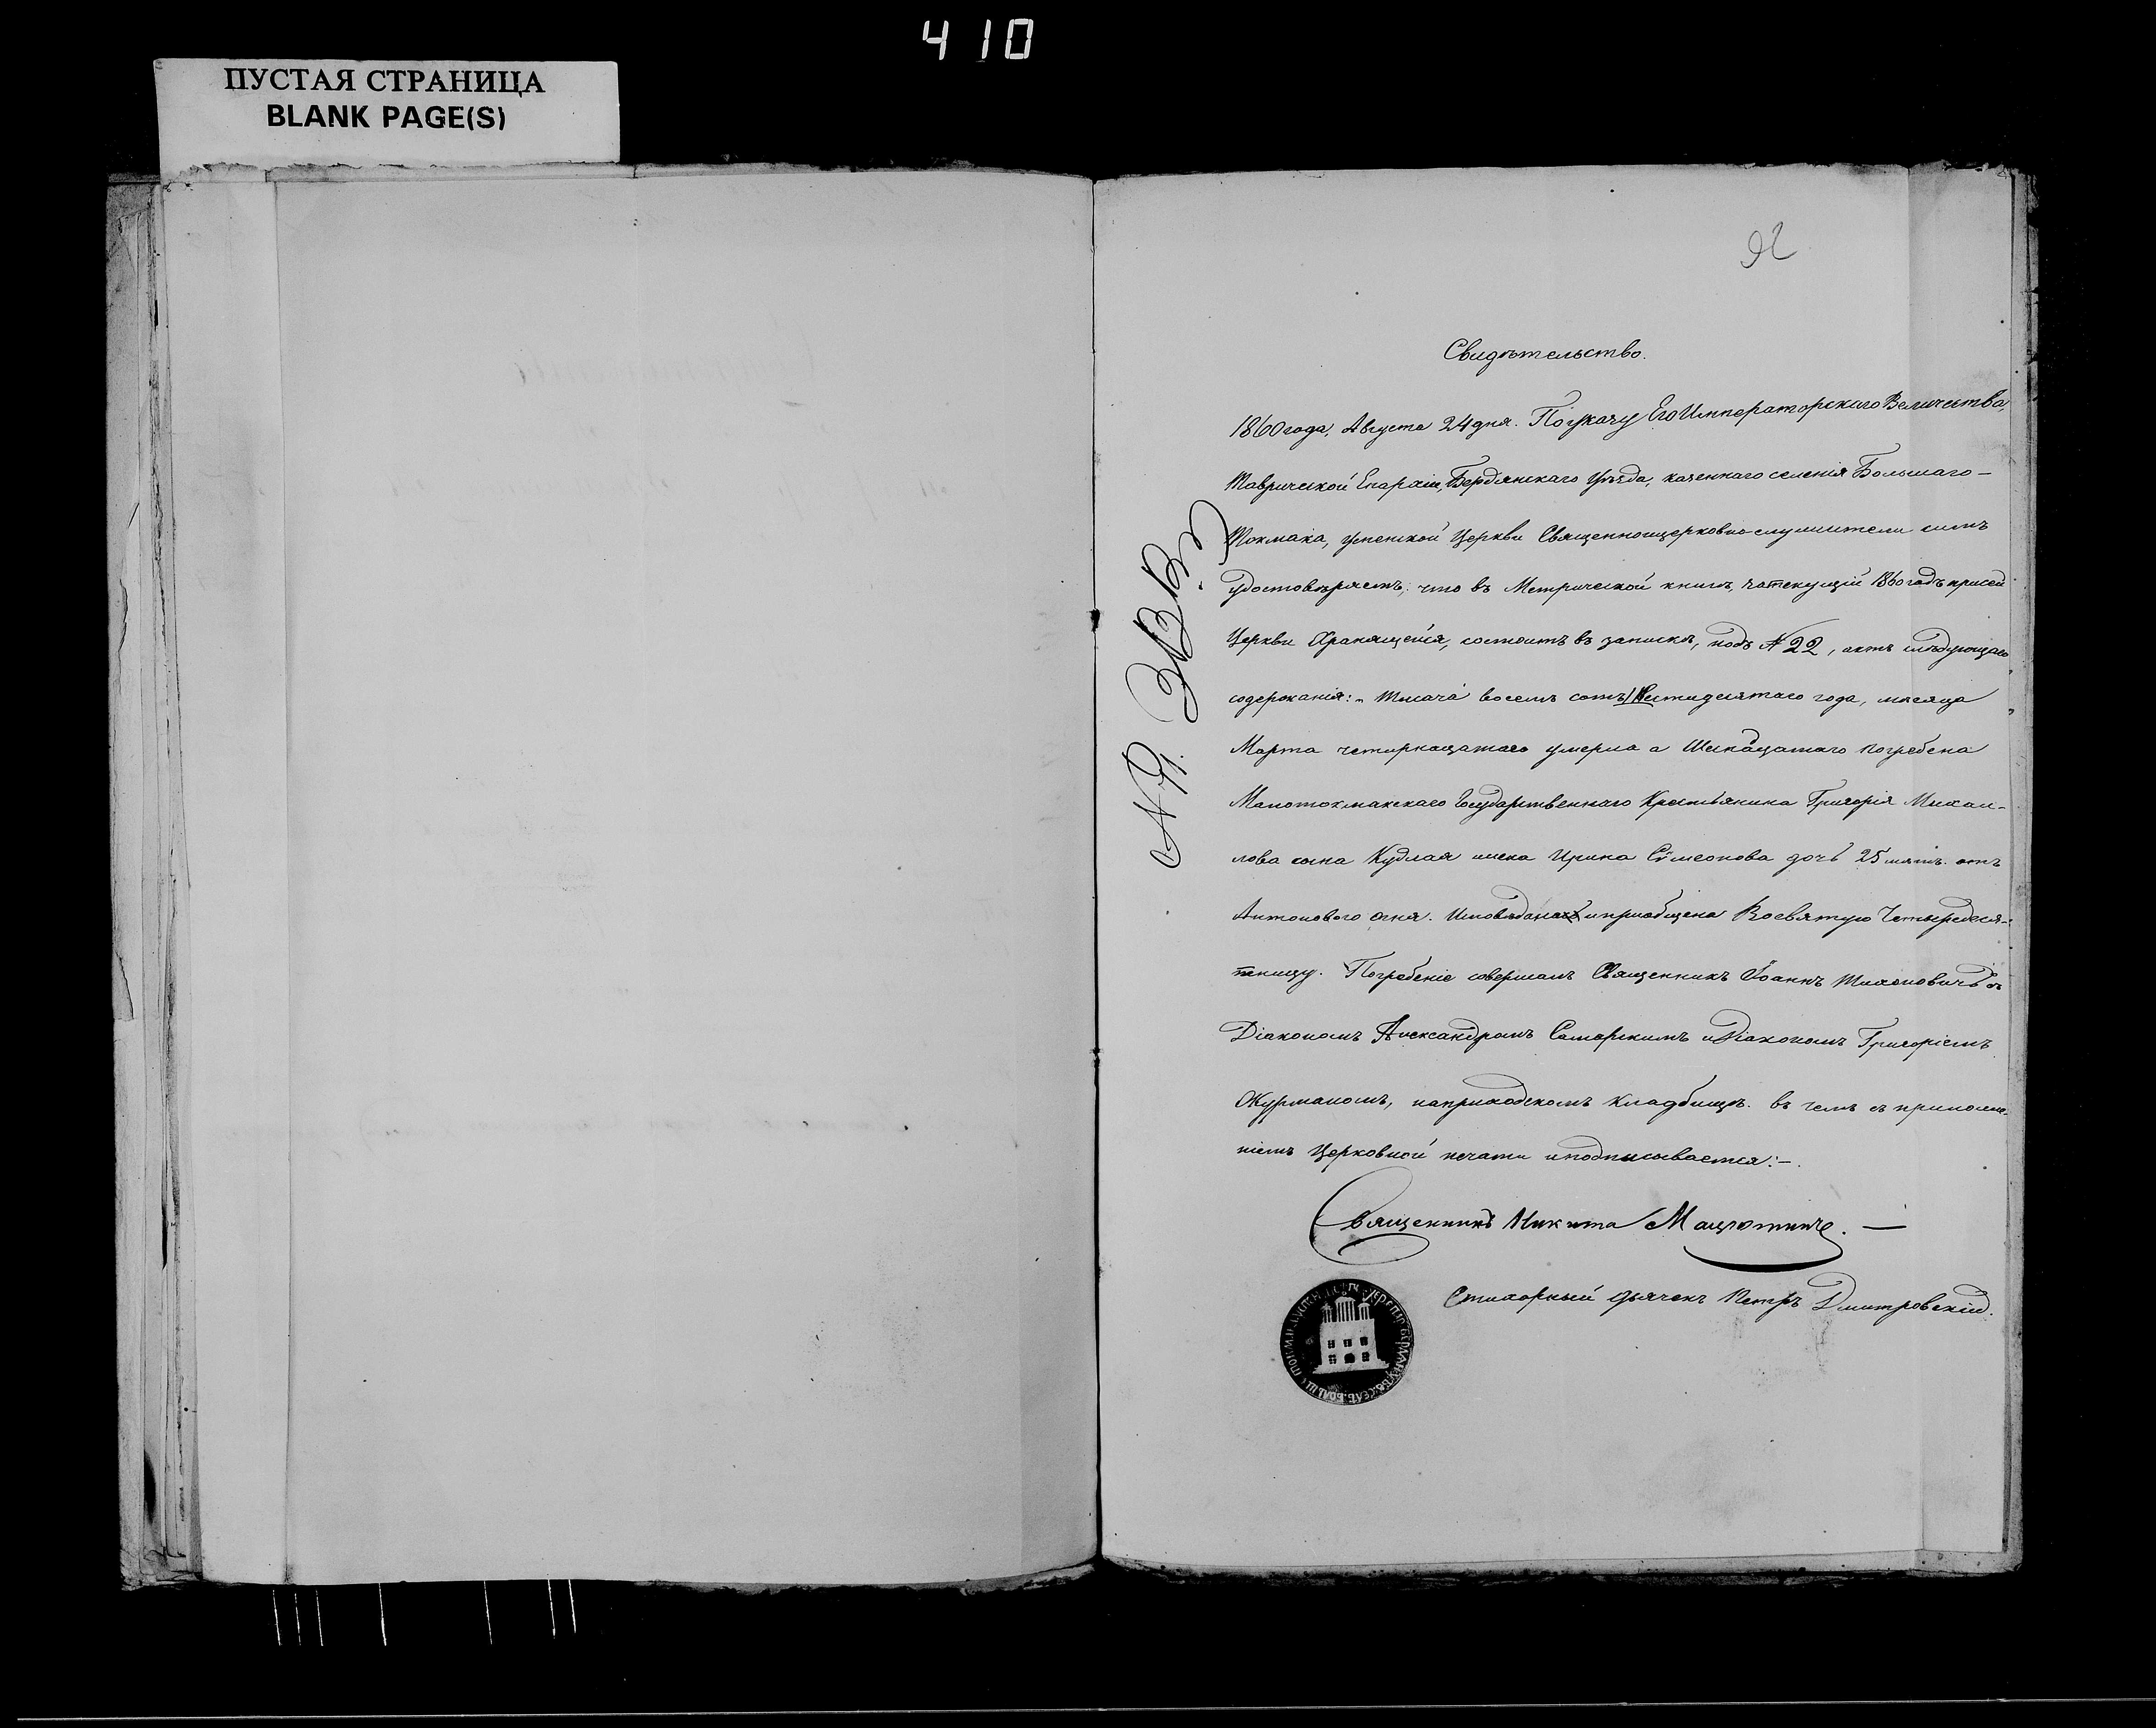 410
ПУСТАЯ СТРАНИЦА
BLANK PAGE(S)
92
Свидѣтельство.
1860 года, Августа 24 дня. По указу Его Императорскаго Величества,
Таврической Епархіи, Бердянскаго Уѣзда, казеннаго селенія Большаго-
Токмака, Успенской Церкви Священноицерковно служители симъ
удостовѣряетъ: что въ Метрической книгѣ, за текущій 1860 годъ при сей
Церкви Хранящейся, состоитъ въ запискѣ, подъ № 22, актъ слѣдующаго
содержанія: „Тысяча восемь сотъ Шестидесятаго года, мѣсяца
Марта четырнацатаго умерла а Шеснацатаго погребена
Малотокмакскаго Государственнаго Крестьянина Григорія Михаи-
лова сына Кудлая жена Ирина Сѵмеонова дочь 25 лѣтъ. отъ
Антонового огня. Исповѣдана и приобщена Во святую Четыредеся-
тницу. Погребеніе совершалъ Священникъ Іоаннъ Тихоновичъ съ
Діакономъ Александромъ Самарскимъ и Діакономъ Григоріемъ
Журманомъ, на приходскомъ кладбищѣ. въ чемъ съ приложе-
ніемъ Церковной печати и подписывается:-.
Священникъ Никита
Стихарный дьячекъ Петръ Дмитровскій.